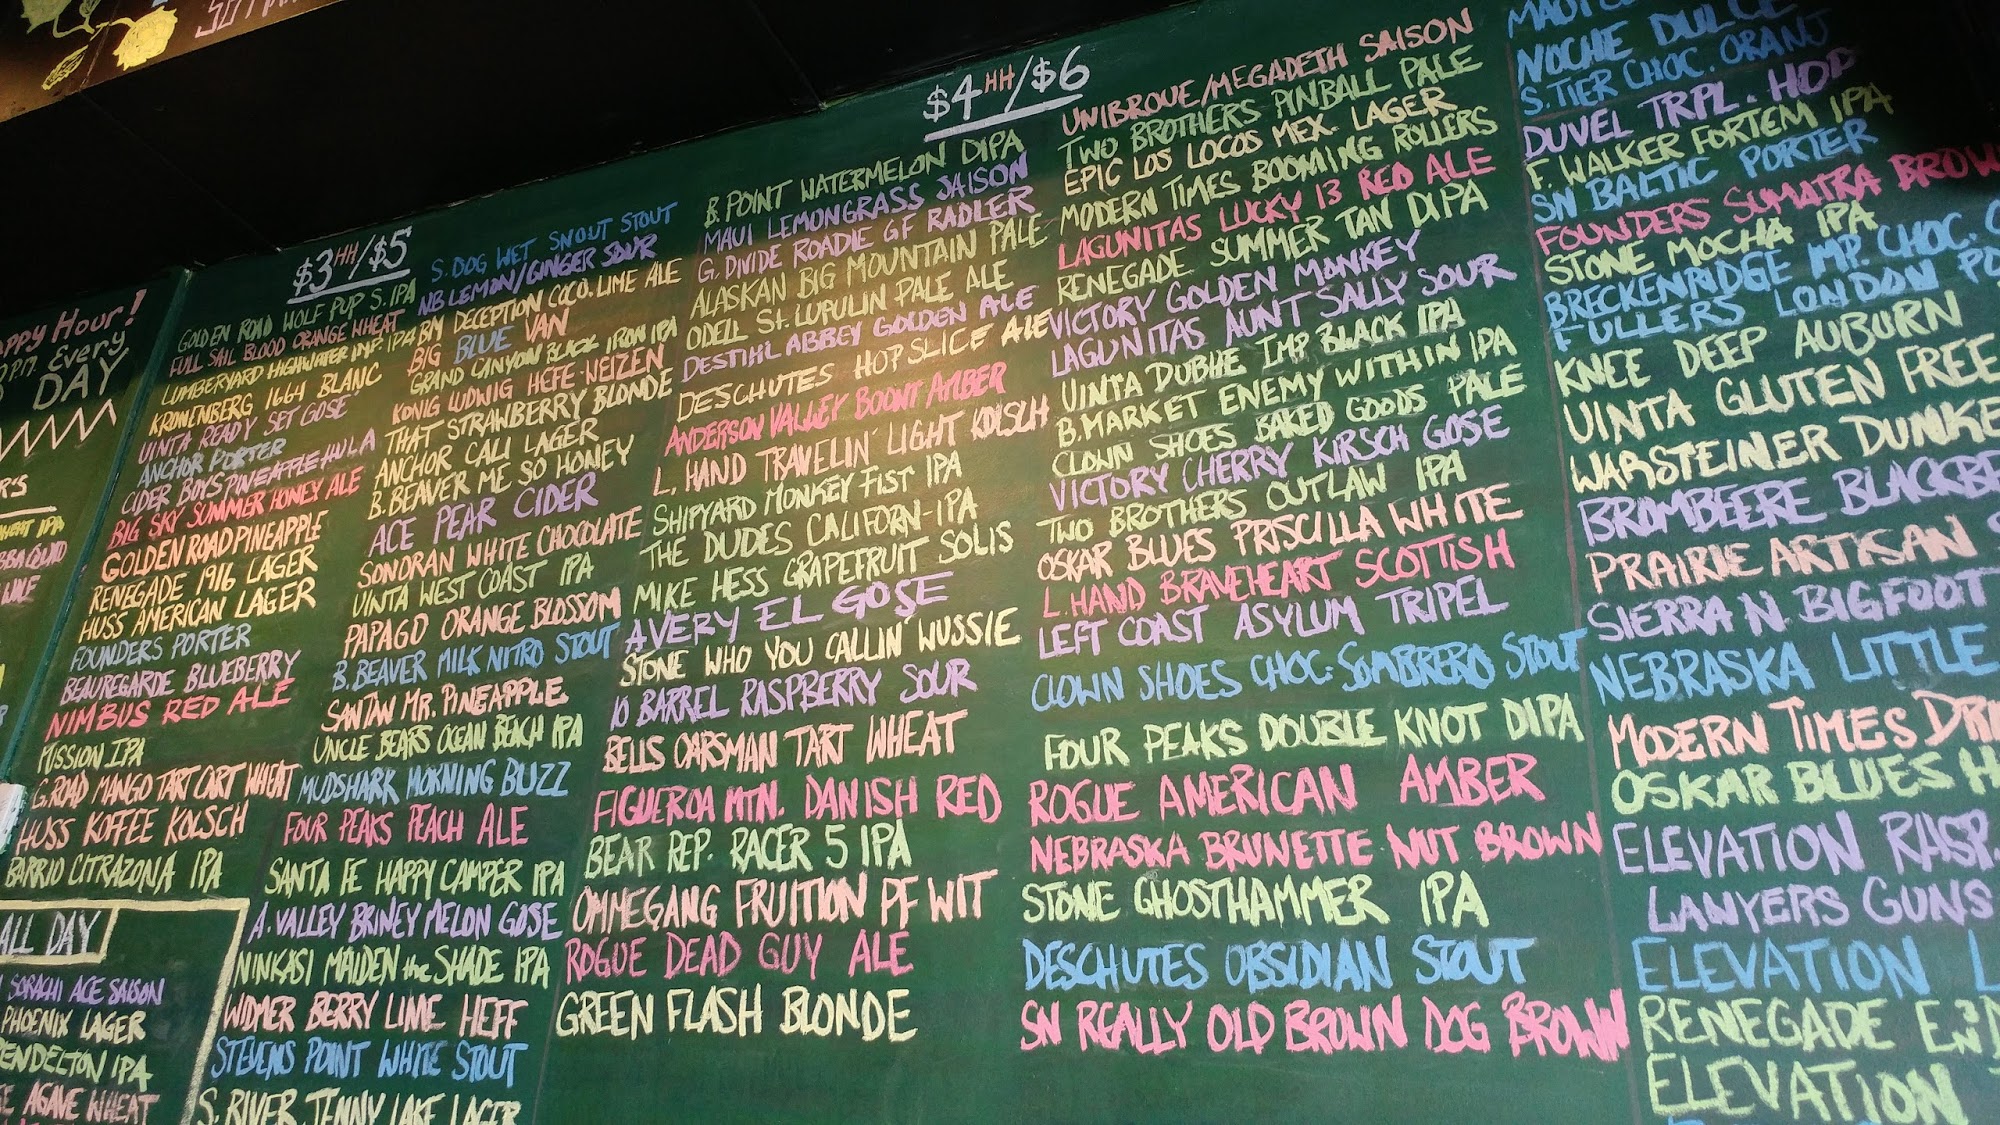 Happy Hour!
PM Every
DAY
ALL DAY
SORACHI ACE SAISON
PHOENIX LAGER
PENDELTON IPA
AGAVE WHEAT
$3 HH/$5
GOLDEN ROAD WOLF PUP S. IPA
FULL SAIL BLOOD ORANGE WHEAT
LUMBERYARD HIGHWATER IMP. IPA
KRONENBERG 1664 BLANC
UINTA READY SET GOSE
ANCHOR PORTER
CIDER BOYS PINEAPPLE HULA
BIG SKY SUMMER HONEY ALE
GOLDEN ROAD PINEAPPLE
RENEGADE 1916 LAGER
HUSS AMERICAN LAGER
FOUNDERS PORTER
BEAUREGARDE BLUEBERRY
NIMBUS RED ALE
MISSION IPA
G. ROAD MANGO TART CART WHEAT
HUSS KOFFEE KOLSCH
BARRIO CITRAZONA IPA
S. DOG WET SNOUT STOUT
NB LEMON/GINGER SOUR
BM DECEPTION COCO. LIME ALE
BIG BLUE VAN
GRAND CANYON BLACK IRON IPA
KONIG LUDWIG HEFE-WEIZEN
THAT STRAWBERRY BLONDE
ANCHOR CALI LAGER
B. BEAVER ME SO HONEY
ACE PEAR CIDER
SONORAN WHITE CHOCOLATE
UINTA WEST COAST IPA
PAPAGO ORANGE BLOSSOM
B. BEAVER MILK NITRO STOUT
SANTAN MR. PINEAPPLE
UNCLE BEARS OCEAN BEACH IPA
MUDSHARK MORNING BUZZ
FOUR PEAKS PEACH ALE
SANTA FE HAPPY CAMPER IPA
A. VALLEY BRINEY MELON GOSE
NINKASI MAIDEN the SHADE IPA
WIDMER BERRY LIME HEFF
STEVENS POINT WHITE STOUT
S. RIVER JENNY LAKE LAGER
$4 HH/$6
B. POINT WATERMELON DIPA
MAUI LEMONGRASS SAISON
G. DIVIDE ROADIE GF RADLER
ALASKAN BIG MOUNTAIN PALE
ODELL ST. LUPULIN PALE ALE
DESTIHL ABBEY GOLDEN ALE
DESCHUTES HOP SLICE ALE
ANDERSON VALLEY BOONT AMBER
L. HAND TRAVELIN' LIGHT KOLSCH
SHIPYARD MONKEY FIST IPA
THE DUDES CALIFORN-IPA
MIKE HESS GRAPEFRUIT SOLIS
AVERY EL GOSE
STONE WHO YOU CALLIN' WUSSIE
10 BARREL RASPBERRY SOUR
BELLS OARSMAN TART WHEAT
FIGUEROA MTN. DANISH RED
BEAR REP. RACER 5 IPA
OMMEGANG FRUITION PF WIT
ROGUE DEAD GUY ALE
GREEN FLASH BLONDE
UNIBROUE/MEGADETH SAISON
TWO BROTHERS PINBALL PALE
EPIC LOS LOCOS MEX. LAGER
MODERN TIMES BOOMING ROLLERS
LAGUNITAS LUCKY 13 RED ALE
RENEGADE SUMMER TAN DIPA
VICTORY GOLDEN MONKEY
LAGUNITAS AUNT SALLY SOUR
UINTA DUBHE IMP BLACK IPA
B. MARKET ENEMY WITHIN IPA
CLOWN SHOES BAKED GOODS PALE
VICTORY CHERRY KIRSCH GOSE
TWO BROTHERS OUTLAW IPA
OSKAR BLUES PRISCILLA WHITE
L. HAND BRAVEHEART SCOTTISH
LEFT COAST ASYLUM TRIPEL
CLOWN SHOES CHOC. SOMBRERO STOUT
FOUR PEAKS DOUBLE KNOT DIPA
ROGUE AMERICAN AMBER
NEBRASKA BRUNETTE NUT BROWN
STONE GHOSTHAMMER IPA
DESCHUTES OBSIDIAN STOUT
SN REALLY OLD BROWN DOG BROWN
MAUI
NOCHE DULCE
S. TIER CHOC. ORANJ
DUVEL TRPL. HOP
F. WALKER FORTEM IPA
SN BALTIC PORTER
FOUNDERS SUMATRA BROWN
STONE MOCHA IPA
BRECKENRIDGE MP. CHOC.
FULLERS LONDON PO
KNEE DEEP AUBURN
UINTA GLUTEN FREE
WARSTEINER DUNKE
BROMBEERE BLACKBE
PRAIRIE ARTISAN
SIERRA N. BIGFOOT
NEBRASKA LITTLE
MODERN TIMES DR
OSKAR BLUES H
ELEVATION RASP.
LAWYERS GUNS
ELEVATION L
RENEGADE
ELEVATION